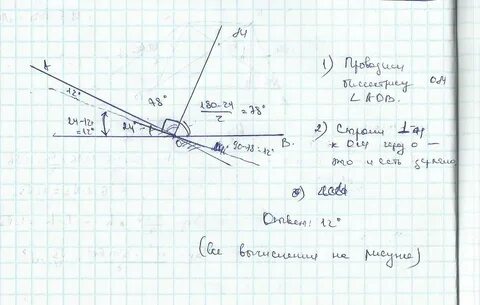 M
A
12°
78°
(180-24)/2 = 78°
24-12
=12°
24°
O
B.
90-78=12°
1) Проводим
биссектрису ОМ
∠ AOB.
2) Строим ⊥
к ОМ через О –
это и есть зеркало
Ответ: 12°
(все вычисления на рисунке)